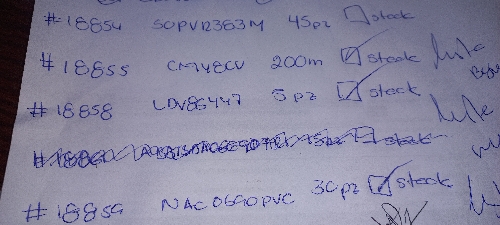 #18854 SOPVR383M 45pz stock
#18855 CM48CV 200m stock
#18858 LDV8S447 5pz stock
#18859 NAC0690PVC 30pz stock